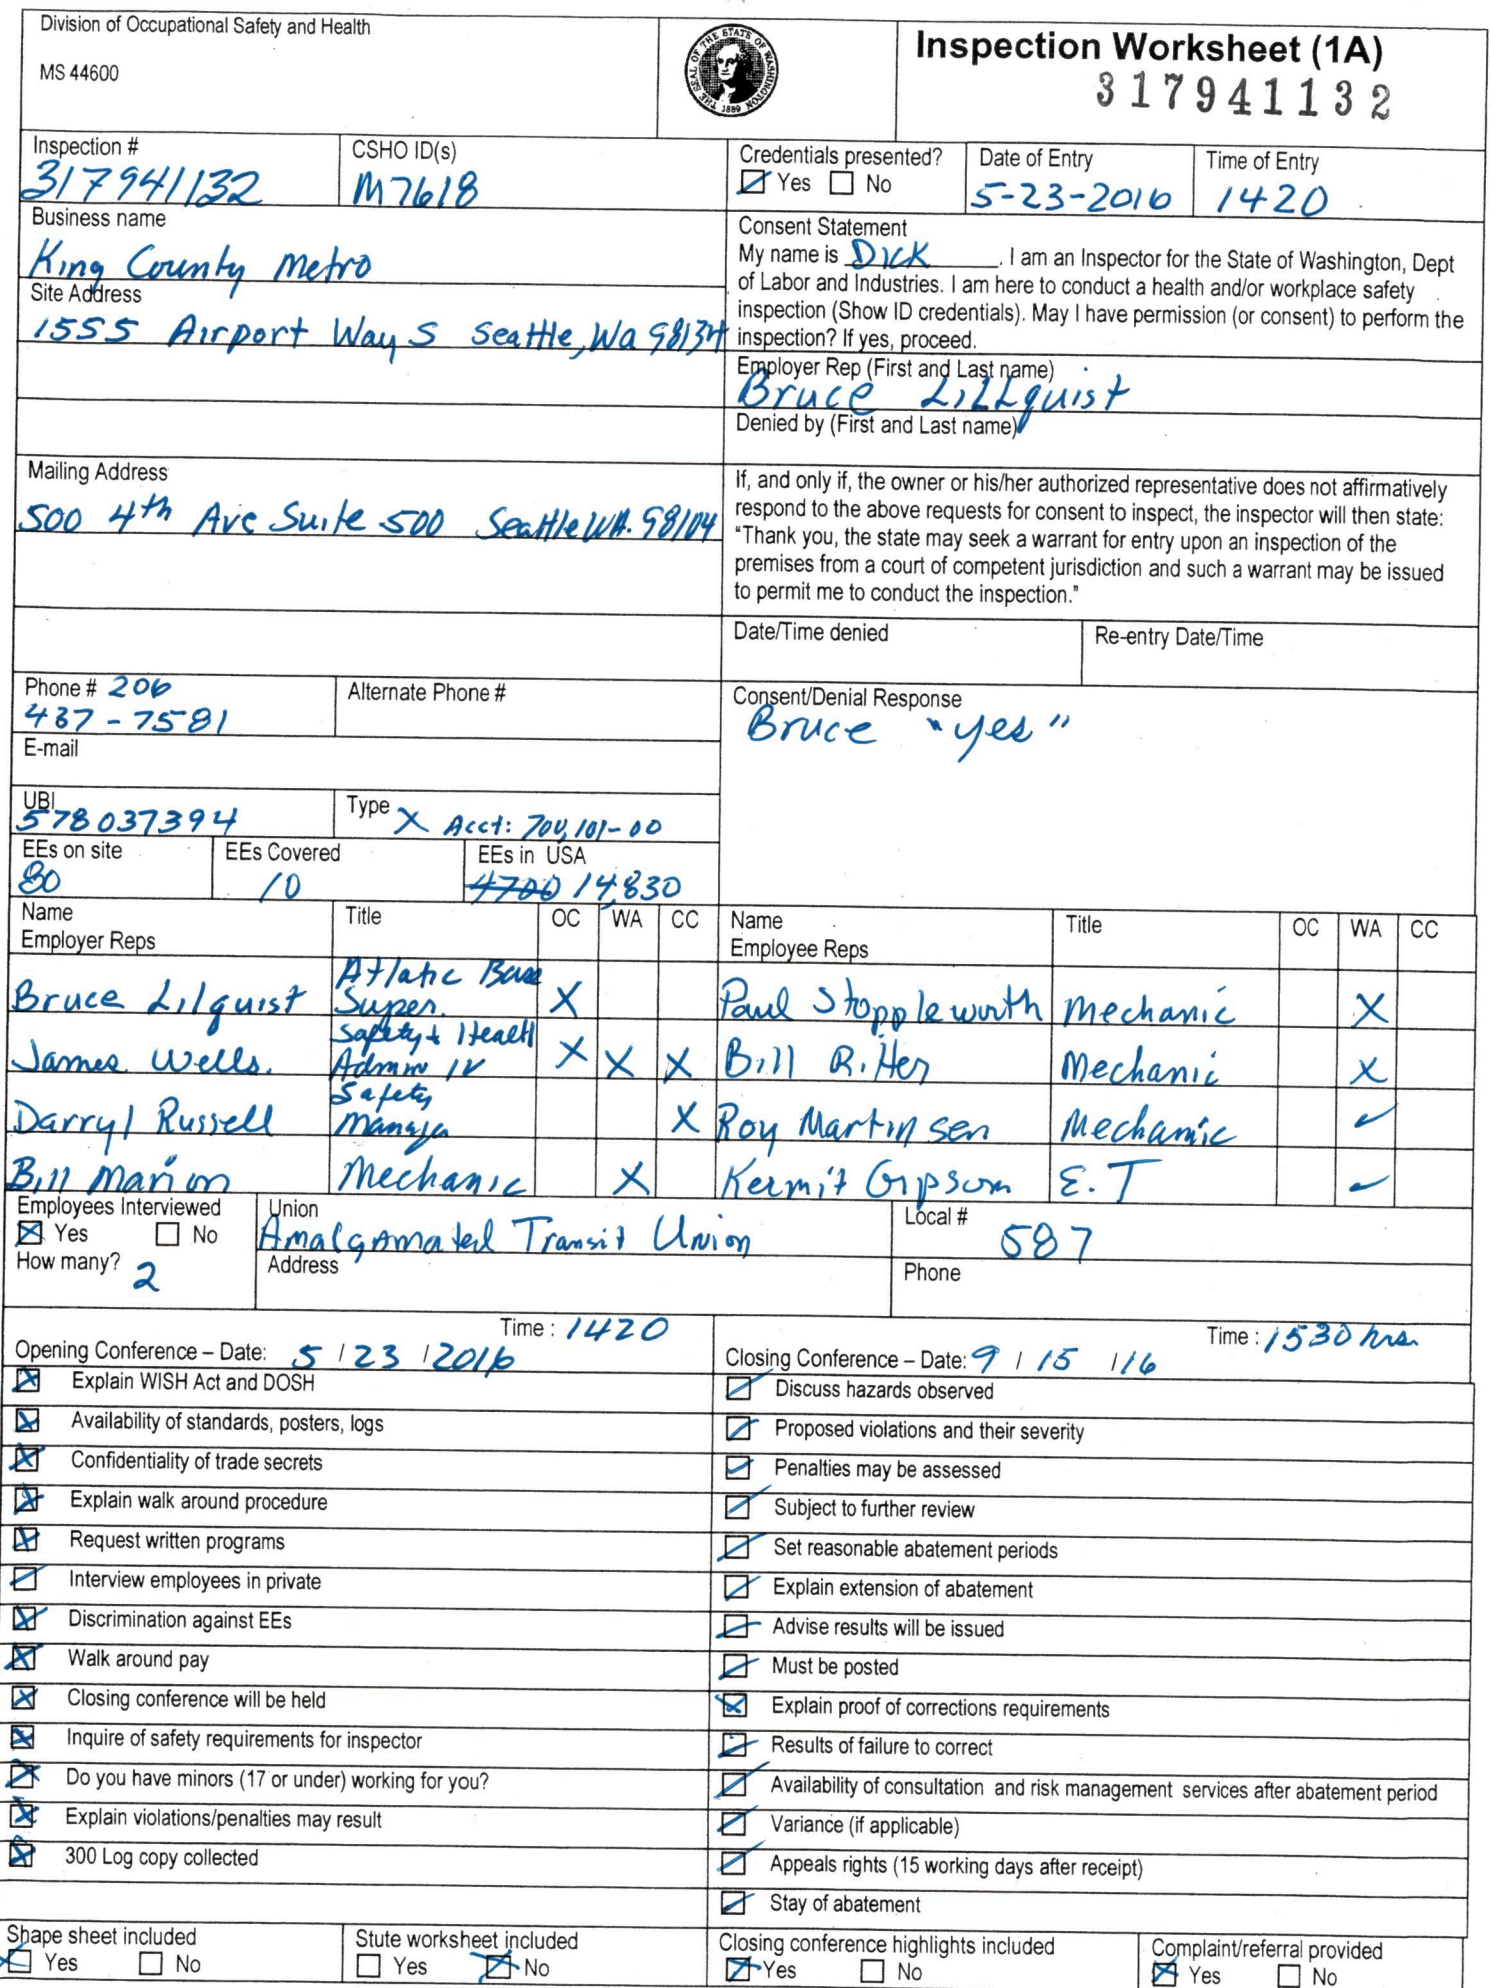 Division of Occupational Safety and Health
MS 44600
THE SEAL OF THE STATE OF WASHINGTON
1889
Inspection Worksheet (1A)
317941132
Inspection #
317941132
CSHO ID(s)
M7618
Credentials presented?
Yes No
Date of Entry
5-23-2016
Time of Entry
1420
Business name
King County Metro
Site Address
1555 Airport Way S Seattle, Wa 98134
Consent Statement
My name is Dick . I am an Inspector for the State of Washington, Dept
of Labor and Industries. I am here to conduct a health and/or workplace safety
inspection (Show ID credentials). May I have permission (or consent) to perform the
inspection? If yes, proceed.
Employer Rep (First and Last name)
Bruce LiLLquist
Denied by (First and Last name)
Mailing Address
500 4th Ave Suite 500 Seattle WA. 98104
If, and only if, the owner or his/her authorized representative does not affirmatively
respond to the above requests for consent to inspect, the inspector will then state:
“Thank you, the state may seek a warrant for entry upon an inspection of the
premises from a court of competent jurisdiction and such a warrant may be issued
to permit me to conduct the inspection.”
Date/Time denied
Re-entry Date/Time
Phone # 206
437-7581
Alternate Phone #
E-mail
Consent/Denial Response
Bruce "yes"
UBI
578037394
Type X Acct: 700,101-00
EEs on site
80
EEs Covered
10
EEs in USA
4700 14,830
Name
Employer Reps
Title
OC WA CC
Name
Employee Reps
Title
OC WA CC
Bruce Lilquist Atlatic Base Super. X
Paul Stoppleworth Mechanic X
James Wells. Safety & Health Admin IV X X X
Bill Ritter Mechanic X
Darryl Russell Safety X
Roy Martinsen Mechanic ✓
Bill Marion Mechanic X
Kermit Gipson E.T ✓
Employees Interviewed
Yes No
How many? 2
Union
Amalgamated Transit Union
Address
Local #
587
Phone
Time : 1420
Opening Conference – Date: 5 / 23 / 2016
Explain WISH Act and DOSH
Availability of standards, posters, logs
Confidentiality of trade secrets
Explain walk around procedure
Request written programs
Interview employees in private
Discrimination against EEs
Walk around pay
Closing conference will be held
Inquire of safety requirements for inspector
Do you have minors (17 or under) working for you?
Explain violations/penalties may result
300 Log copy collected
Time : 1530 hrs.
Closing Conference – Date: 9 / 15 / 16
Discuss hazards observed
Proposed violations and their severity
Penalties may be assessed
Subject to further review
Set reasonable abatement periods
Explain extension of abatement
Advise results will be issued
Must be posted
Explain proof of corrections requirements
Results of failure to correct
Availability of consultation and risk management services after abatement period
Variance (if applicable)
Appeals rights (15 working days after receipt)
Stay of abatement
Shape sheet included
Yes No
Stute worksheet included
Yes No
Closing conference highlights included
Yes No
Complaint/referral provided
Yes No